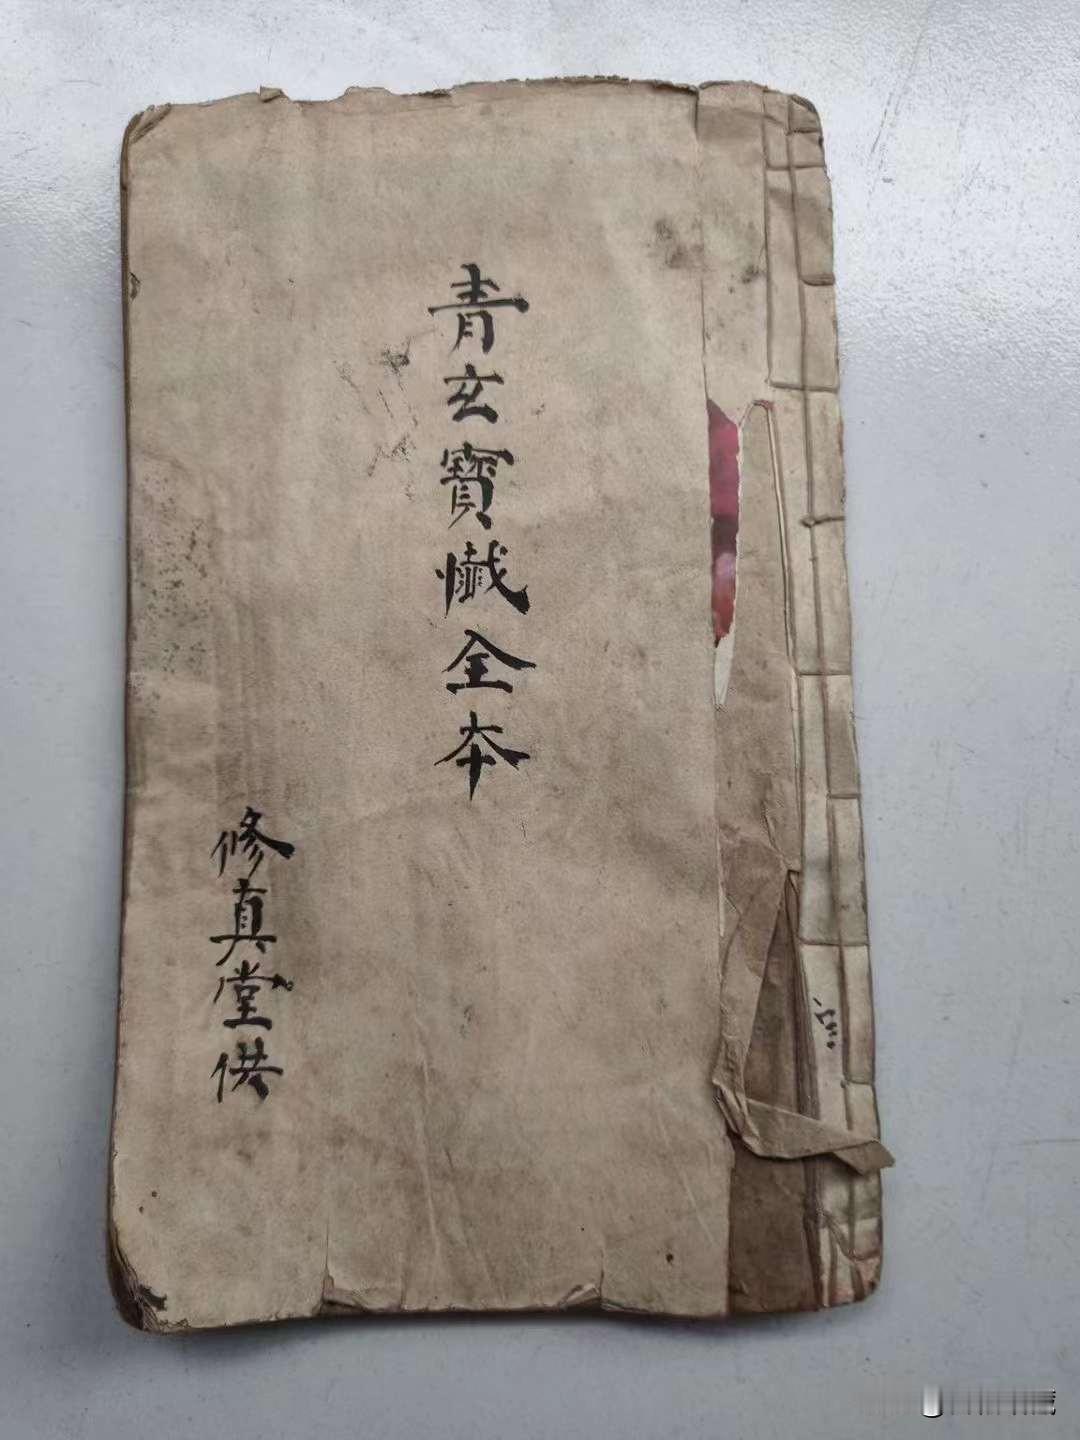 青玄寶懴全本
修真堂供